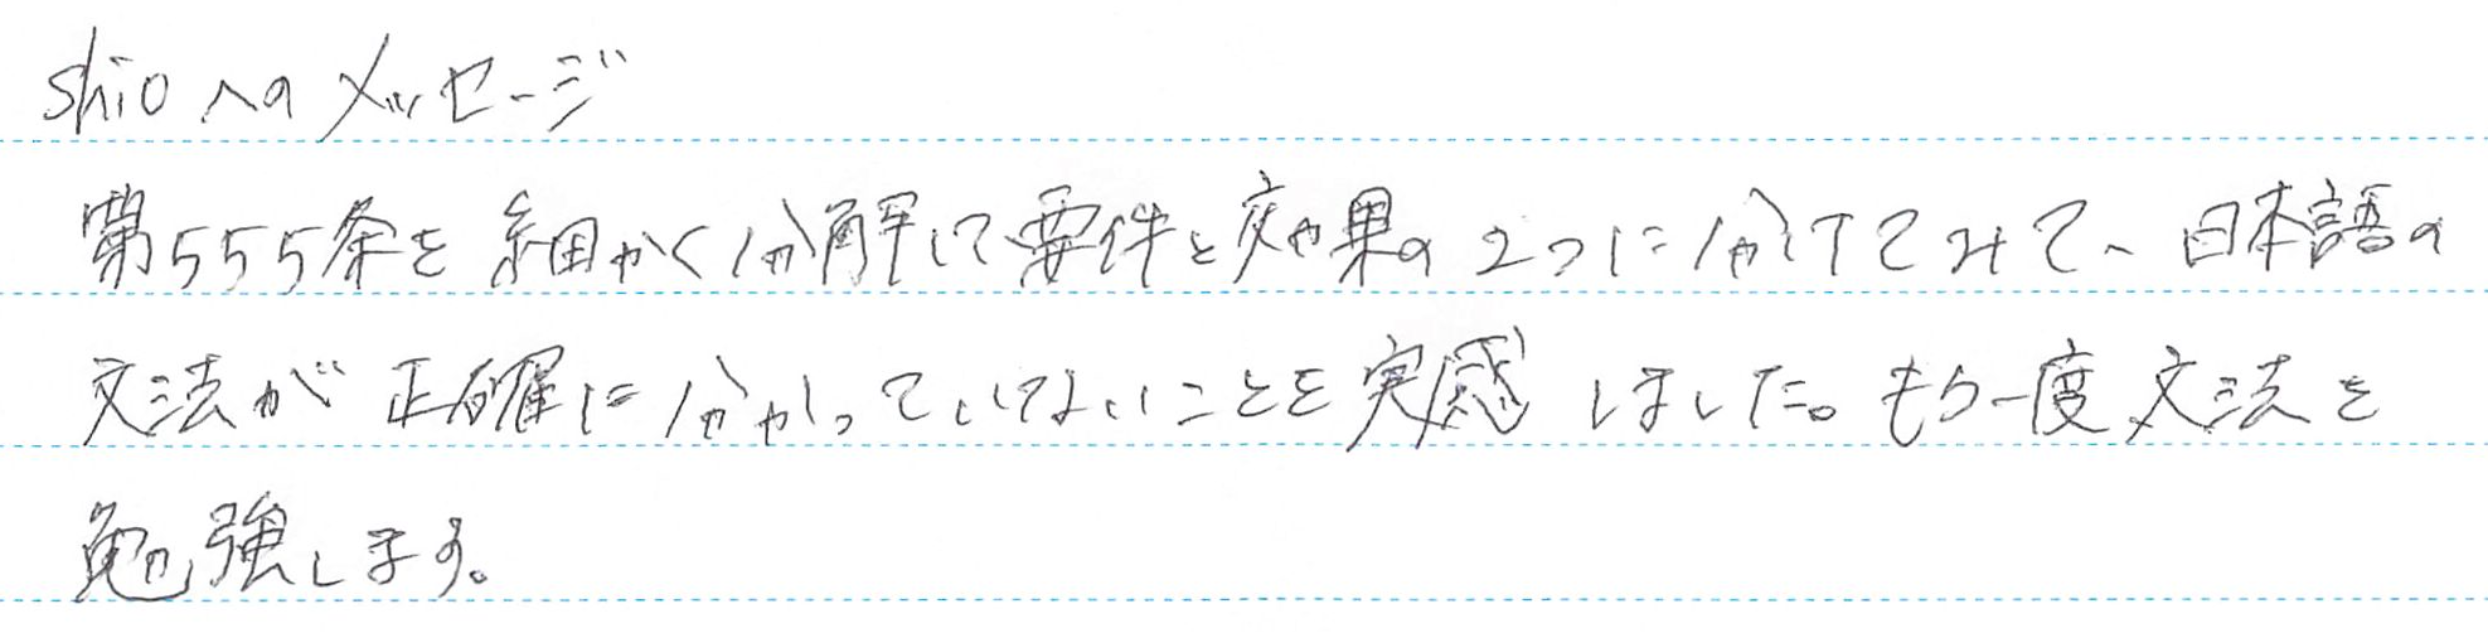 shioへのメッセージ
第555条を細かく分解して要件と効果の2つに分けてみて、日本語の
文法が正確に分かっていないことを実感しました。もう一度文法を
勉強します。